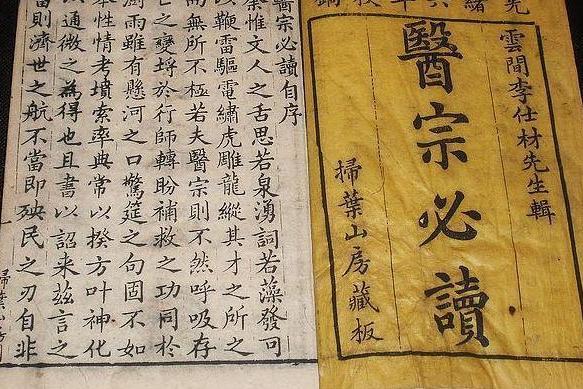 雲間李仕材先生輯
醫宗必讀
掃葉山房藏板
醫宗必讀自序
余惟文人之舌思若泉湧詞若藻發可
以鞭雷驅電繡虎雕龍縱其才之所之
而無所不極若夫醫宗則不然呼吸存
亡之變埒於行師轉盼補救之功同於
澍雨雖有懸河之口驚筵之句固不如
本性情考墳索率典常以揆方叶神化
以通微之為得也且書以詔来茲言之
當則濟世之航不當即殃民之刃自非
掃葉山房